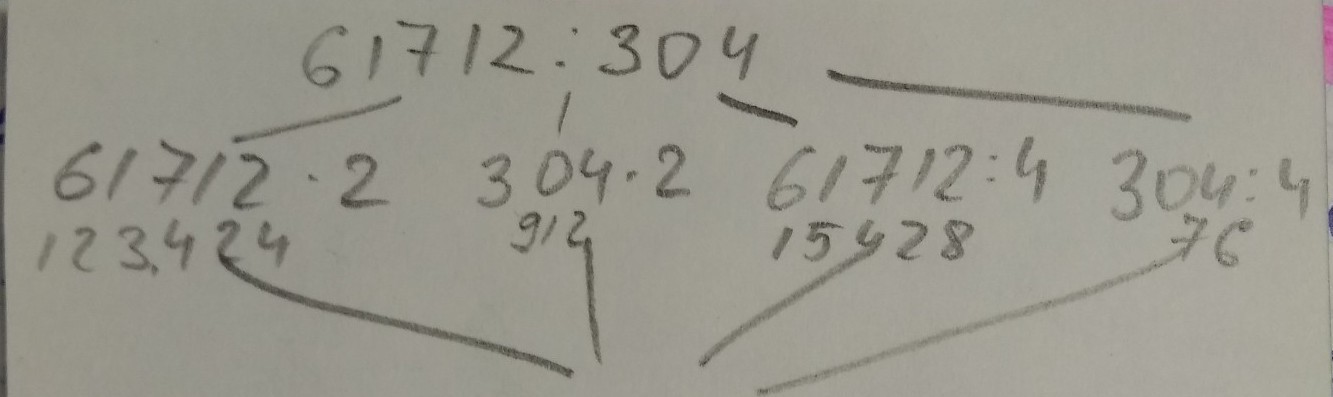 61712:304
61712·2 304·2 61712:4 304:4
123.424 912 15428 76